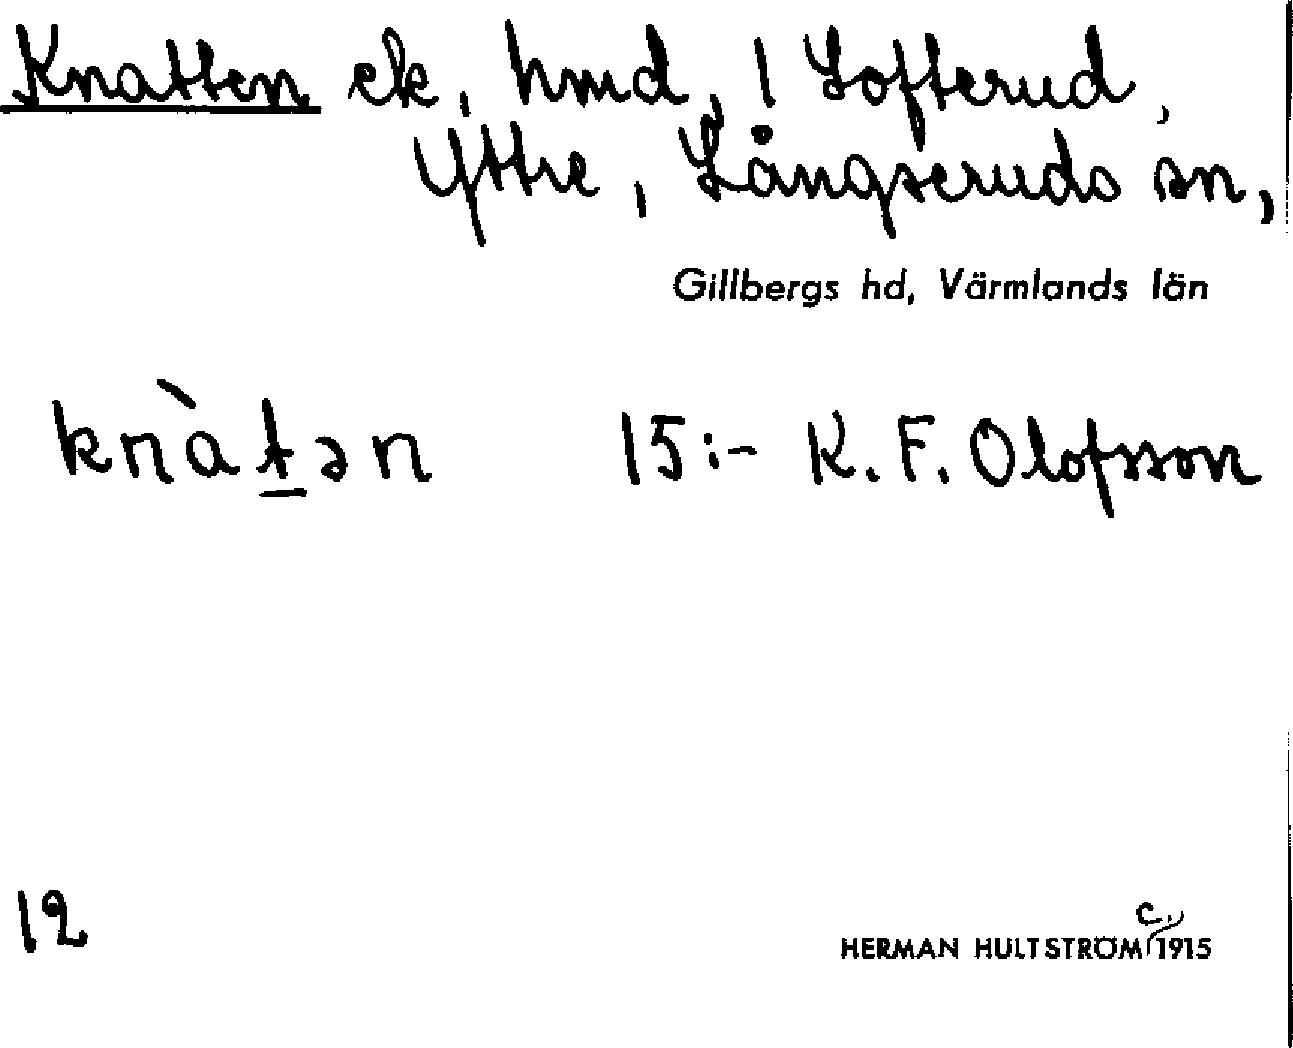 Knatten ek, hmd, ! Lofterud,
Yttre, Långseruds sn,
Gillbergs hd, Värmlands län
knàt̲ən 15:- K. F. Olofsson
12
HERMAN HULTSTRÖM c. 1915